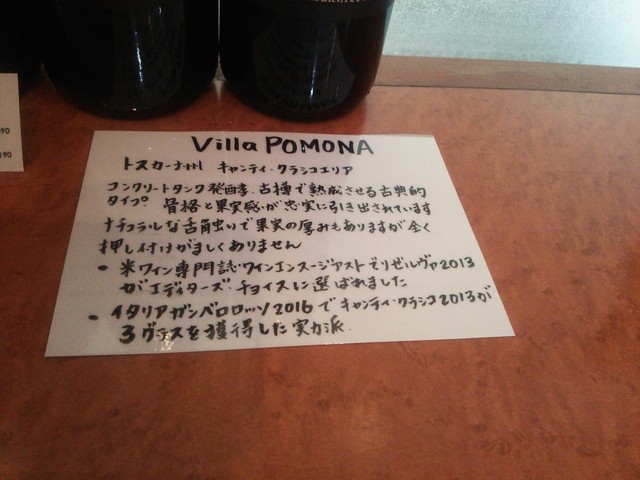 Villa POMONA
トスカーナ州 キャンティ・クラシコエリア
コンクリートタンク発酵、古樽で熟成させる古典的
タイプ。 骨格と果実感が忠実に引き出されています
ナチュラルな舌触りで果実の厚みもありますが全く
押し付けがましくありません
• 米ワイン専門誌・ワインエンスージアストでリゼルヴァ2013
がエディターズ・チョイスに選ばれました
• イタリアガンベロロッソ2016でキャンティ・クラシコ2013が
3グラスを獲得した実力派.
90